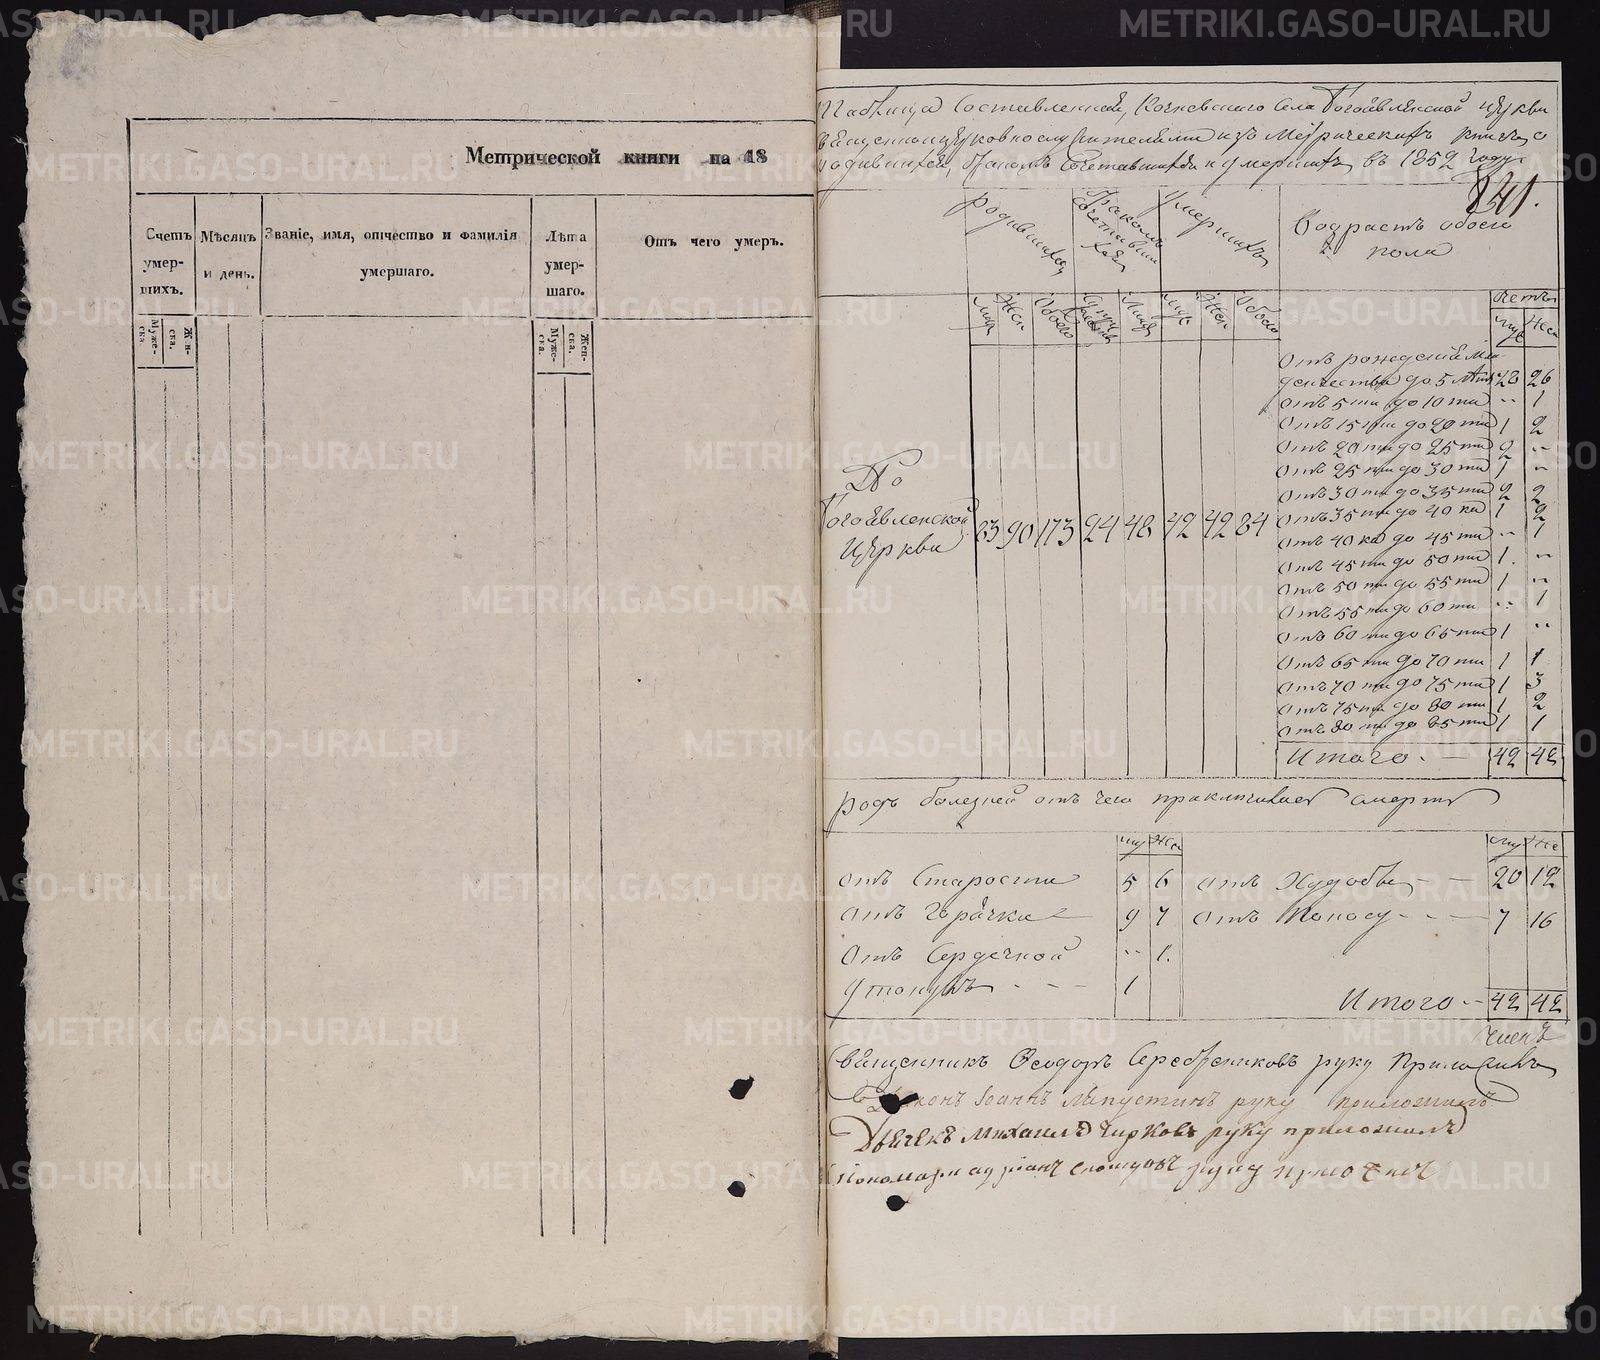 Метрической книги на 18
Счетъ умер- шихъ.
Муже- ска.
Жен- ска.
Мѣсяцъ и день.
Званіе, имя, отчество и фамилія умершаго.
Лѣта умер- шаго.
Муже- ска.
Жен- ска.
Отъ чего умеръ.
Таблица Составленная, Кочневскаго Села Богоявленской церкви
Священноцерковнослужителями изъ Метрическихъ книгъ о
родившихся, бракомъ Сочетавшихся и умершихъ, въ 1852 Году
241.
родившихся
бракомъ сочетавшихся
умершихъ
Возрастъ обоего пола
муж Жен Обоего Лицъ муж Жен Обоего
Леты
муж Жен
По Богоявленской Церкви
83 90 173 24 48 42 42 84
Отъ рожденія мла-
денчества до 5 лѣтъ 28 26
Отъ 5 ти до 10 ти " 1
Отъ 15 ти до 20 ти 1 2
Отъ 20 ти до 25 ти 2 "
Отъ 25 ти до 30 ти 1 "
Отъ 30 ти до 35 ти 2 2
Отъ 35 ти до 40 ка 1 2
Отъ 40 ка до 45 ти " 1
Отъ 45 ти до 50 ти 1 "
Отъ 50 ти до 55 ти 1 "
Отъ 55 ти до 60 ти " 1
Отъ 60 ти до 65 ти 1 "
Отъ 65 ти до 70 ти 1 1
Отъ 70 ти до 75 ти 1 3
Отъ 75 ти до 80 ти 1 2
Отъ 80 ти до 85 ти 1 1
Итого. — 42 42
родъ болезней отъ чего приключилась смерть
му Же му Же
отъ Старости 5 6 отъ Худобы — 20 12
отъ Горячки 9 7 отъ Поносу — 7 16
отъ Сердечной " 1.
утонулъ 1
Итого — 42 42
Священникъ Феодоръ Серебрениковъ руку Приложилъ
Діаконъ Іоаннъ Лапустинъ руку приложилъ
Дьячекъ Михаилъ Чирковъ руку приложилъ
Пономарь руку приложилъ